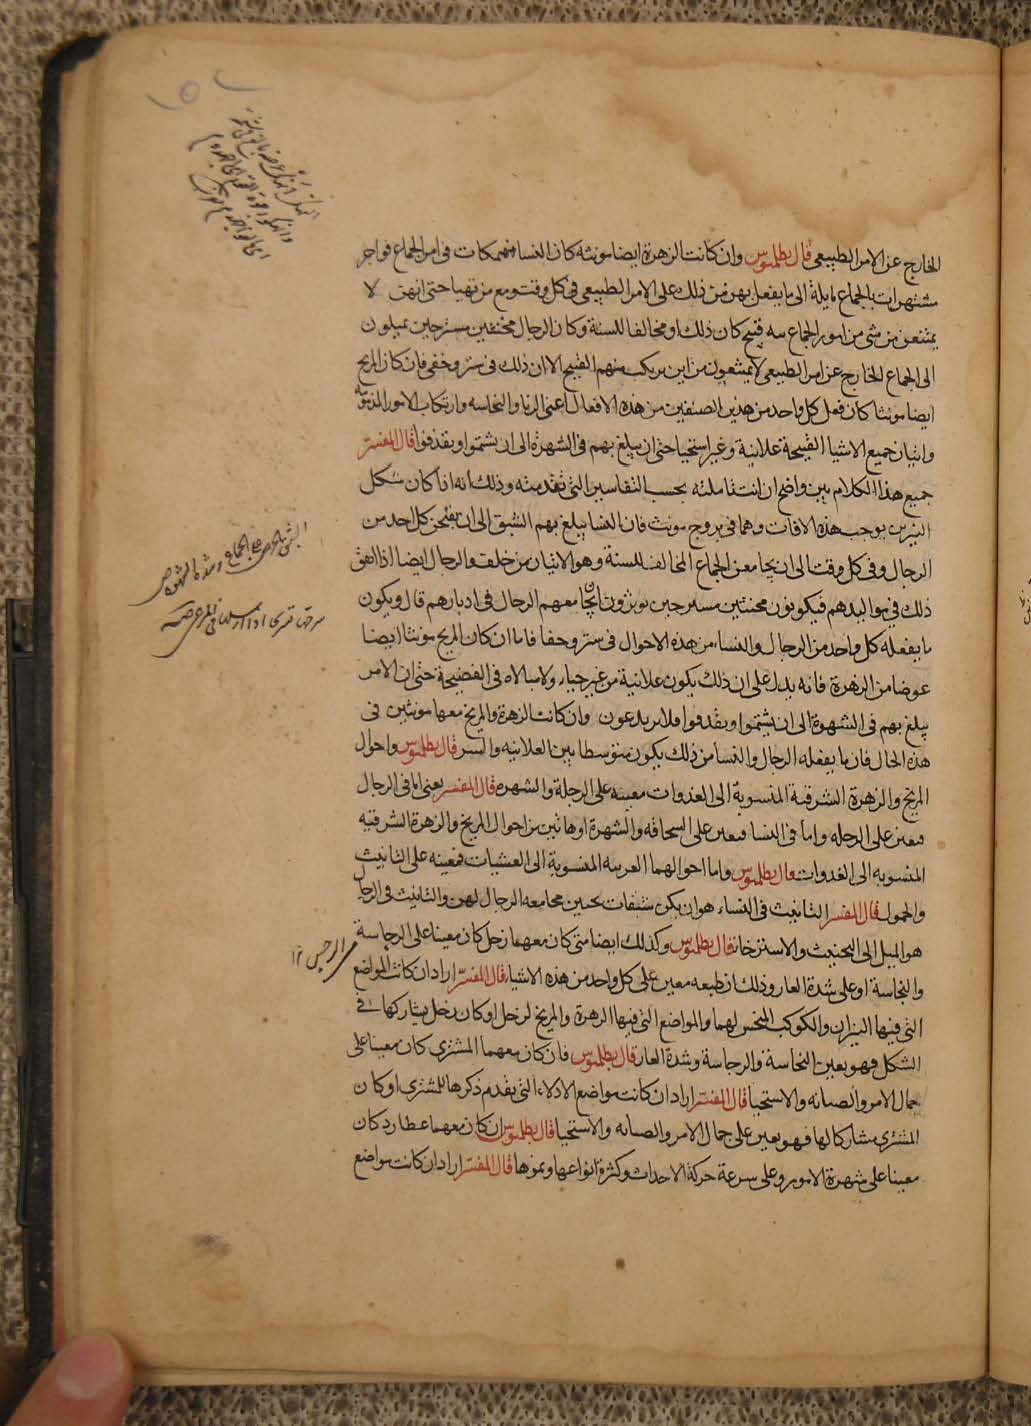 الخارج عن الامر الطبيعى قال بطلميوس وان كانت الزهرة ايضا مونثه كان النسا منهمكات فى امر الجماع فواجر
مشتهرات بالجماع مايلة الى ما يفعل بهن من ذلك على الامر الطبيعى فى كل وقت ومع من تهيا حتى انهن لا
يمتنعن من شى من امور الجماع سه قبيح كان ذلك او مخالفا للسنة وكان الرجال مخنثين مسترجين يميلون
الى الجماع الخارج عن امر الطبيعى لا يمتنعون من اين يركب منهم القبيح الا ان ذلك فى ستر وخفى فان كان المريخ
ايضا مونثا كان فعل كل واحد من هذين الصنفين من هذه الافعال اعنى الزنا والنجاسه وارتكاب الامور المذمومة
واتيان جميع الاشيا القبيحة علانية وغير استحيا حتى ان يبلغ بهم فى الشهرة الى ان يشتموا ويقذفوا قال المفسر
جميع هذا الكلام بين واضح ان انت تاملته بحسب التفاسير التى تقدمته وذلك انه اذا كان شكل
النيرين يوجب هذه الافات وهما فى بروج مونث فان النسا يبلغ بهم الشبق الى ان لكل احد من
الرجال وفى كل وقت الى ان يجامعن الجماع المخالف للسنة وهو الاتيان من خلف والرجال ايضا اذا اتفق
ذلك فى مواليدهم فيكونون مخنثين مسترجين يوثرون معهم الرجال فى ادبارهم قال ويكون
ما يفعله كل واحد من الرجال والنساء من هذه الاحوال فى ستر وخفا فاما ان كان المريخ مونثا ايضا
عوضا من الزهرة فانه يدل على ان ذلك يكون علانية من غير حياء ولا مبالاه فى الفضيحة حتى ان الامر
يبلغ بهم فى الشهوة الى ان يشتموا ويقذفوا فلا يرتدعون وان كانت الزهرة والمريخ معها مونثين فى
هذه الحال فان ما يفعله الرجال والنسا من ذلك يكون متوسطا بين العلانيه والستر قال بطلميوس واحوال
المريخ والزهرة الشرقية المنسوبة الى الغدوات معينه على الرجلة والشهره قال المفسر يعنى اما فى الرجال
فمعين على الرجله واما فى النسا فمعين على السحاقه والشهرة اوهاتين من احوال المريخ والزهرة الشرقيه
المنسوبه الى الغدوات قال بطلميوس واما احوالهما الغربيه المنسوبة الى العشيات فمعينه على التانيث
والخمول قال المفسر التانيث فى النساء هو ان يكن شبقات يحببن مجامعه الرجال لهن والتانيث فى الرجال
هو الميل الى التخنيث والاسترخاء قال بطلميوس وكذلك ايضا متى كان معهما زحل كان معينا على الرجاسة
والنجاسة او على شدة العار وذلك ان طبعه معين على كل واحد من هذه الاشياء قال المفسر اراد ان كانت المواضع
التى فيها النيران والكوكب المنحس لهما والمواضع التى فيها الزهرة والمريخ لزحل او كان زحل يشاركها فى
الشكل فهو يعين النحاسة والرجاسة وشدة العار قال بطلميوس فان كان معهما المشترى كان معينا على
جمال الامر والصيانه والاستحيا قال المفسر اراد ان كانت مواضع الادلاء التى يقدم ذكرها للمشترى او كان
المشترى مشاركا لها فهو يعين على جمال الامر والصيانه والاستحيا قال بطلميوس ان كان معهما عطارد كان
معينا على شهرة الامور وعلى سرعة حركة الاحداث وكثرة انواعها ونموها قال المفسر اراد ان كانت مواضع